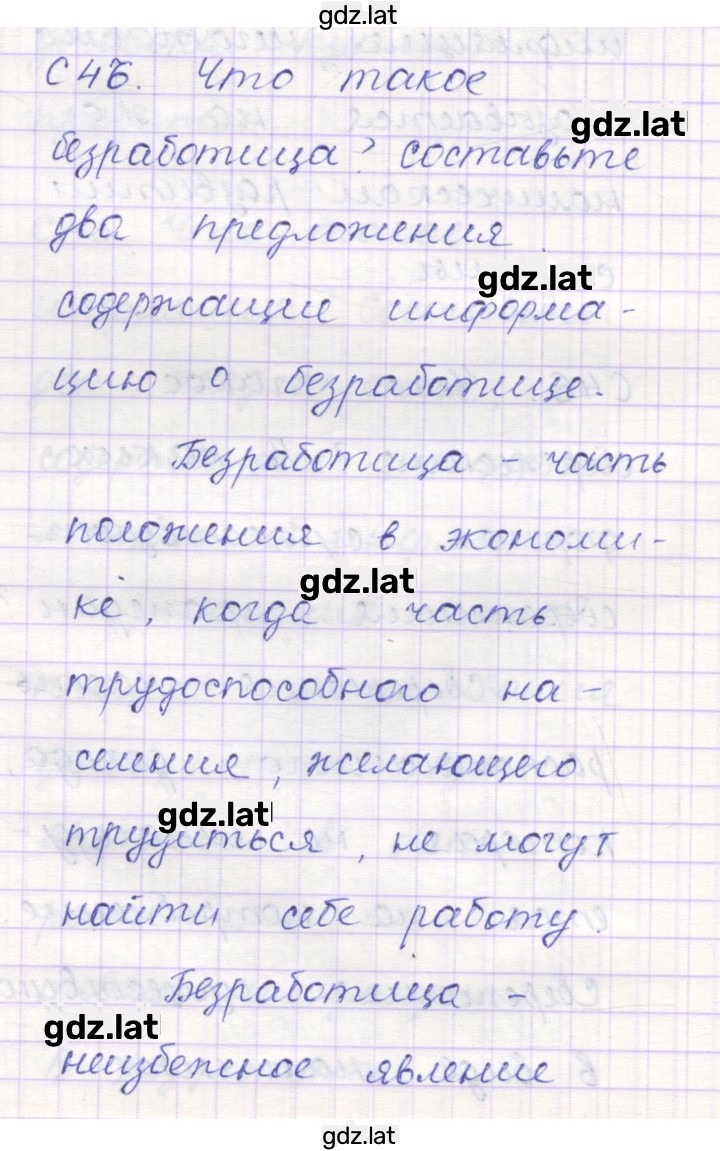 gdz.lat
С4б. Что такое
gdz.lat
безработица? составьте
два предложения
gdz.lat
содержащие информа-
цию о безработице.
Безработица - часть
положения в экономи-
gdz.lat
ке, когда часть
трудоспособного на-
селения, желающего
gdz.lat
трудиться, не могут
найти себе работу.
Безработица -
gdz.lat
неизбежное явление
gdz.lat